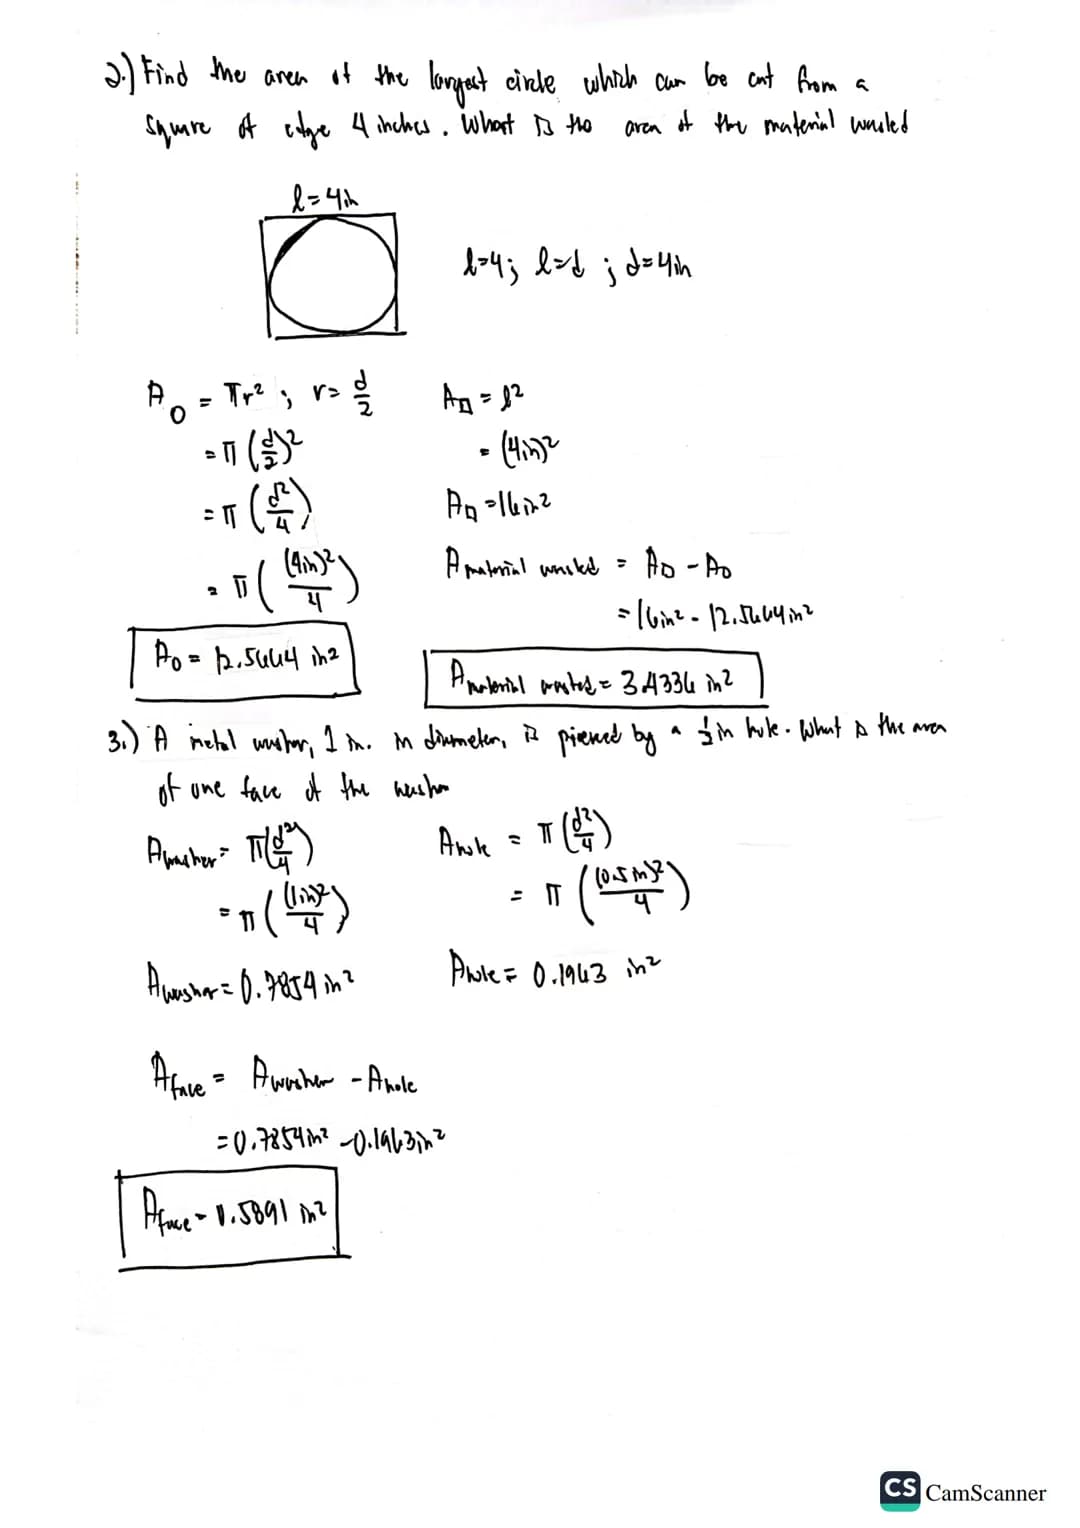 2.) Find the area of the largest circle which can be cut from a
square of edge 4 inches. What is the area of the material wasted
l = 4in
l=4; l=d ; d=4in
A○ = πr² ; r= d/2
= π (d/2)²
= π (d²/4)
= π ((4in)²/4)
A○ = 12.5664 in²
A□ = l²
= (4in)²
A□ = 16in²
A material wasted = A□ - A○
= 16in² - 12.5664in²
A material wasted = 3.4336 in²
3.) A metal washer, 1 in. in diameter, is pierced by a 1/2 in hole. What is the area
of one face of the washer
Awasher = π(d²/4)
= π ((1in)²/4)
Awasher = 0.7854 in²
Ahole = π (d²/4)
= π ((0.5in)²/4)
Ahole = 0.1963 in²
Aface = Awasher - Ahole
= 0.7854in² - 0.1963in²
Aface = 0.5891 in²
CS CamScanner